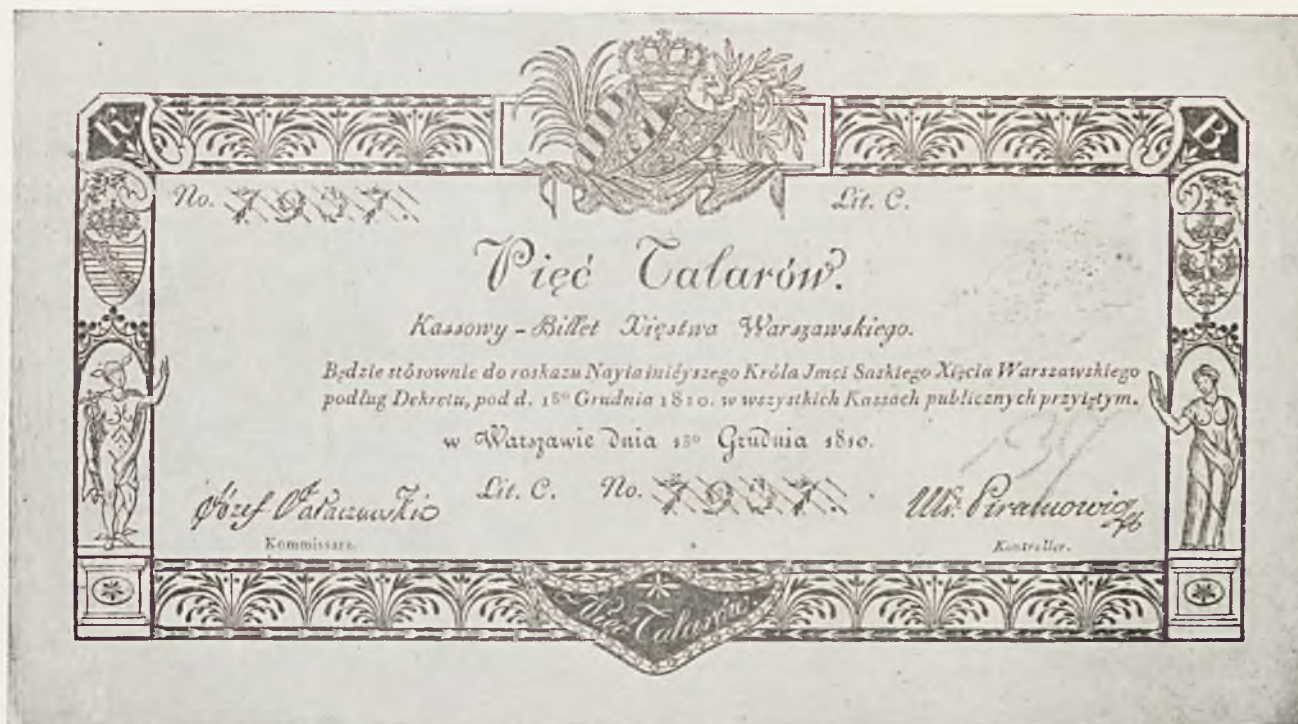 K.
B.
No. 7937.
Lit. C.
Pięć Talarów.
Kassowy - Billet Xięstwa Warszawskiego.
Będzie stósownie do roskazu Nayiaśnieyszego Króla Jmci Saskiego Xięcia Warszawskiego
podług Dekretu, pod d. 1go Grudnia 1810. w wszystkich Kassach publicznych przyiętym.
w Warszawie dnia 1go Grudnia 1810.
Lit. C. No. 7937.
Józef
Kommissarz.
Piramowicz
Kontroller.
Pięć Talarów.